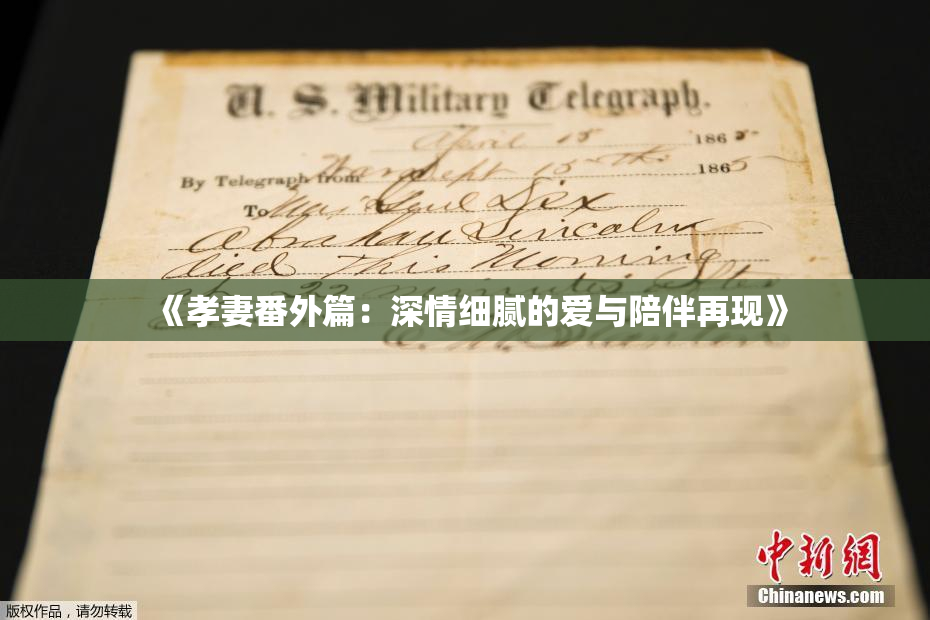 U. S. Military Telegraph.
April 15 1865
By Telegraph from War Dept 15th 1865
To Maj Genl Dix
Abraham Lincoln
died This Morning
at 22 minutes after
《孝妻番外篇：深情细腻的爱与陪伴再现》
E. M. Stanton
中新网
Chinanews.com
版权作品，请勿转载